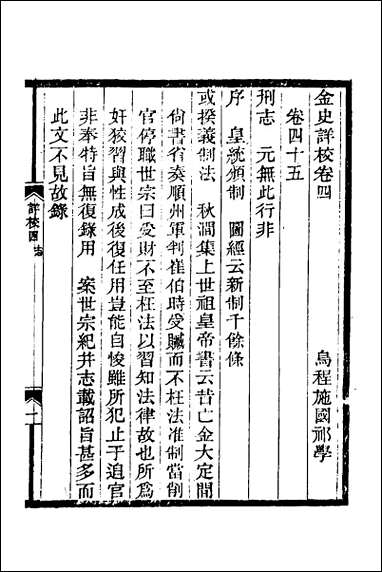 金史詳校卷四
烏程施國祁學
卷四十五
刑志　元無此行非
序　皇統頒制　圖經云新制千餘條
或揆義制法　秋澗集上世祖皇帝書云昔亡金大定間
尚書省奏順州軍判崔伯時受贓而不枉法准制當削
官停職世宗曰受財不至枉法以習知法律故也所爲
奸狡習與性成後復任用豈能自悛雖所犯止于追官
非奉特旨無復錄用　案世宗紀幷志載詔旨甚多而
此文不見故錄
詳校四　志
一